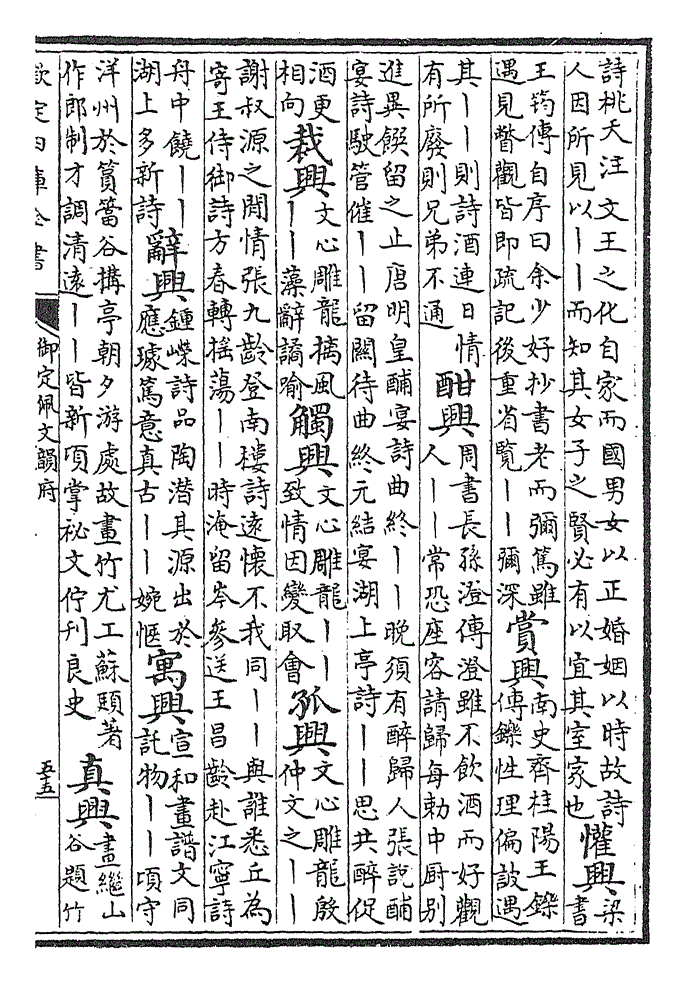 詩桃夭注文王之化自家而國男女以正婚姻以時故詩
人因所見以丨丨而知其女子之賢必有以宜其室家也
懽興
梁
書
王筠傳自序曰余少好抄書老而彌篤雖
遇見瞥觀皆即疏記後重省覽丨丨彌深
賞興
南史齊桂陽王鑠
傳鑠性理偏詖遇
其丨丨則詩酒連日情
有所廢則兄弟不通
酣興
周書長孫澄傳澄雖不飲酒而好觀
人丨丨常恐座客請歸每勅中厨别
進異饌留之止唐明皇酺宴詩曲終丨丨晚須有醉歸人張說酺
宴詩駛管催丨丨留關待曲終元結宴湖上亭詩丨丨思共醉促
酒更
相向
裁興
文心雕龍摛風
丨丨藻辭譎喻
觸興
文心雕龍丨丨
致情因變取會
孤興
文心雕龍殷
仲文之丨丨
謝叔源之閒情張九齡登南樓詩遠懷不我同丨丨與誰悉丘為
寄王侍御詩方春轉揺蕩丨丨時淹留岑參送王昌齡赴江寧詩
舟中饒丨丨
湖上多新詩
辭興
鍾嶸詩品陶潛其源出於
應璩篤意真古丨丨婉愜
寓興
宣和畫譜文同
託物丨丨頃守
洋州於篔簹谷搆亭朝夕游處故畫竹尤工蘇頲著
作郎制才調清遠丨丨皆新項掌祕文佇刊良史
真興
畫繼山
谷題竹
欽定四庫全書
御定佩文韻府
五十五